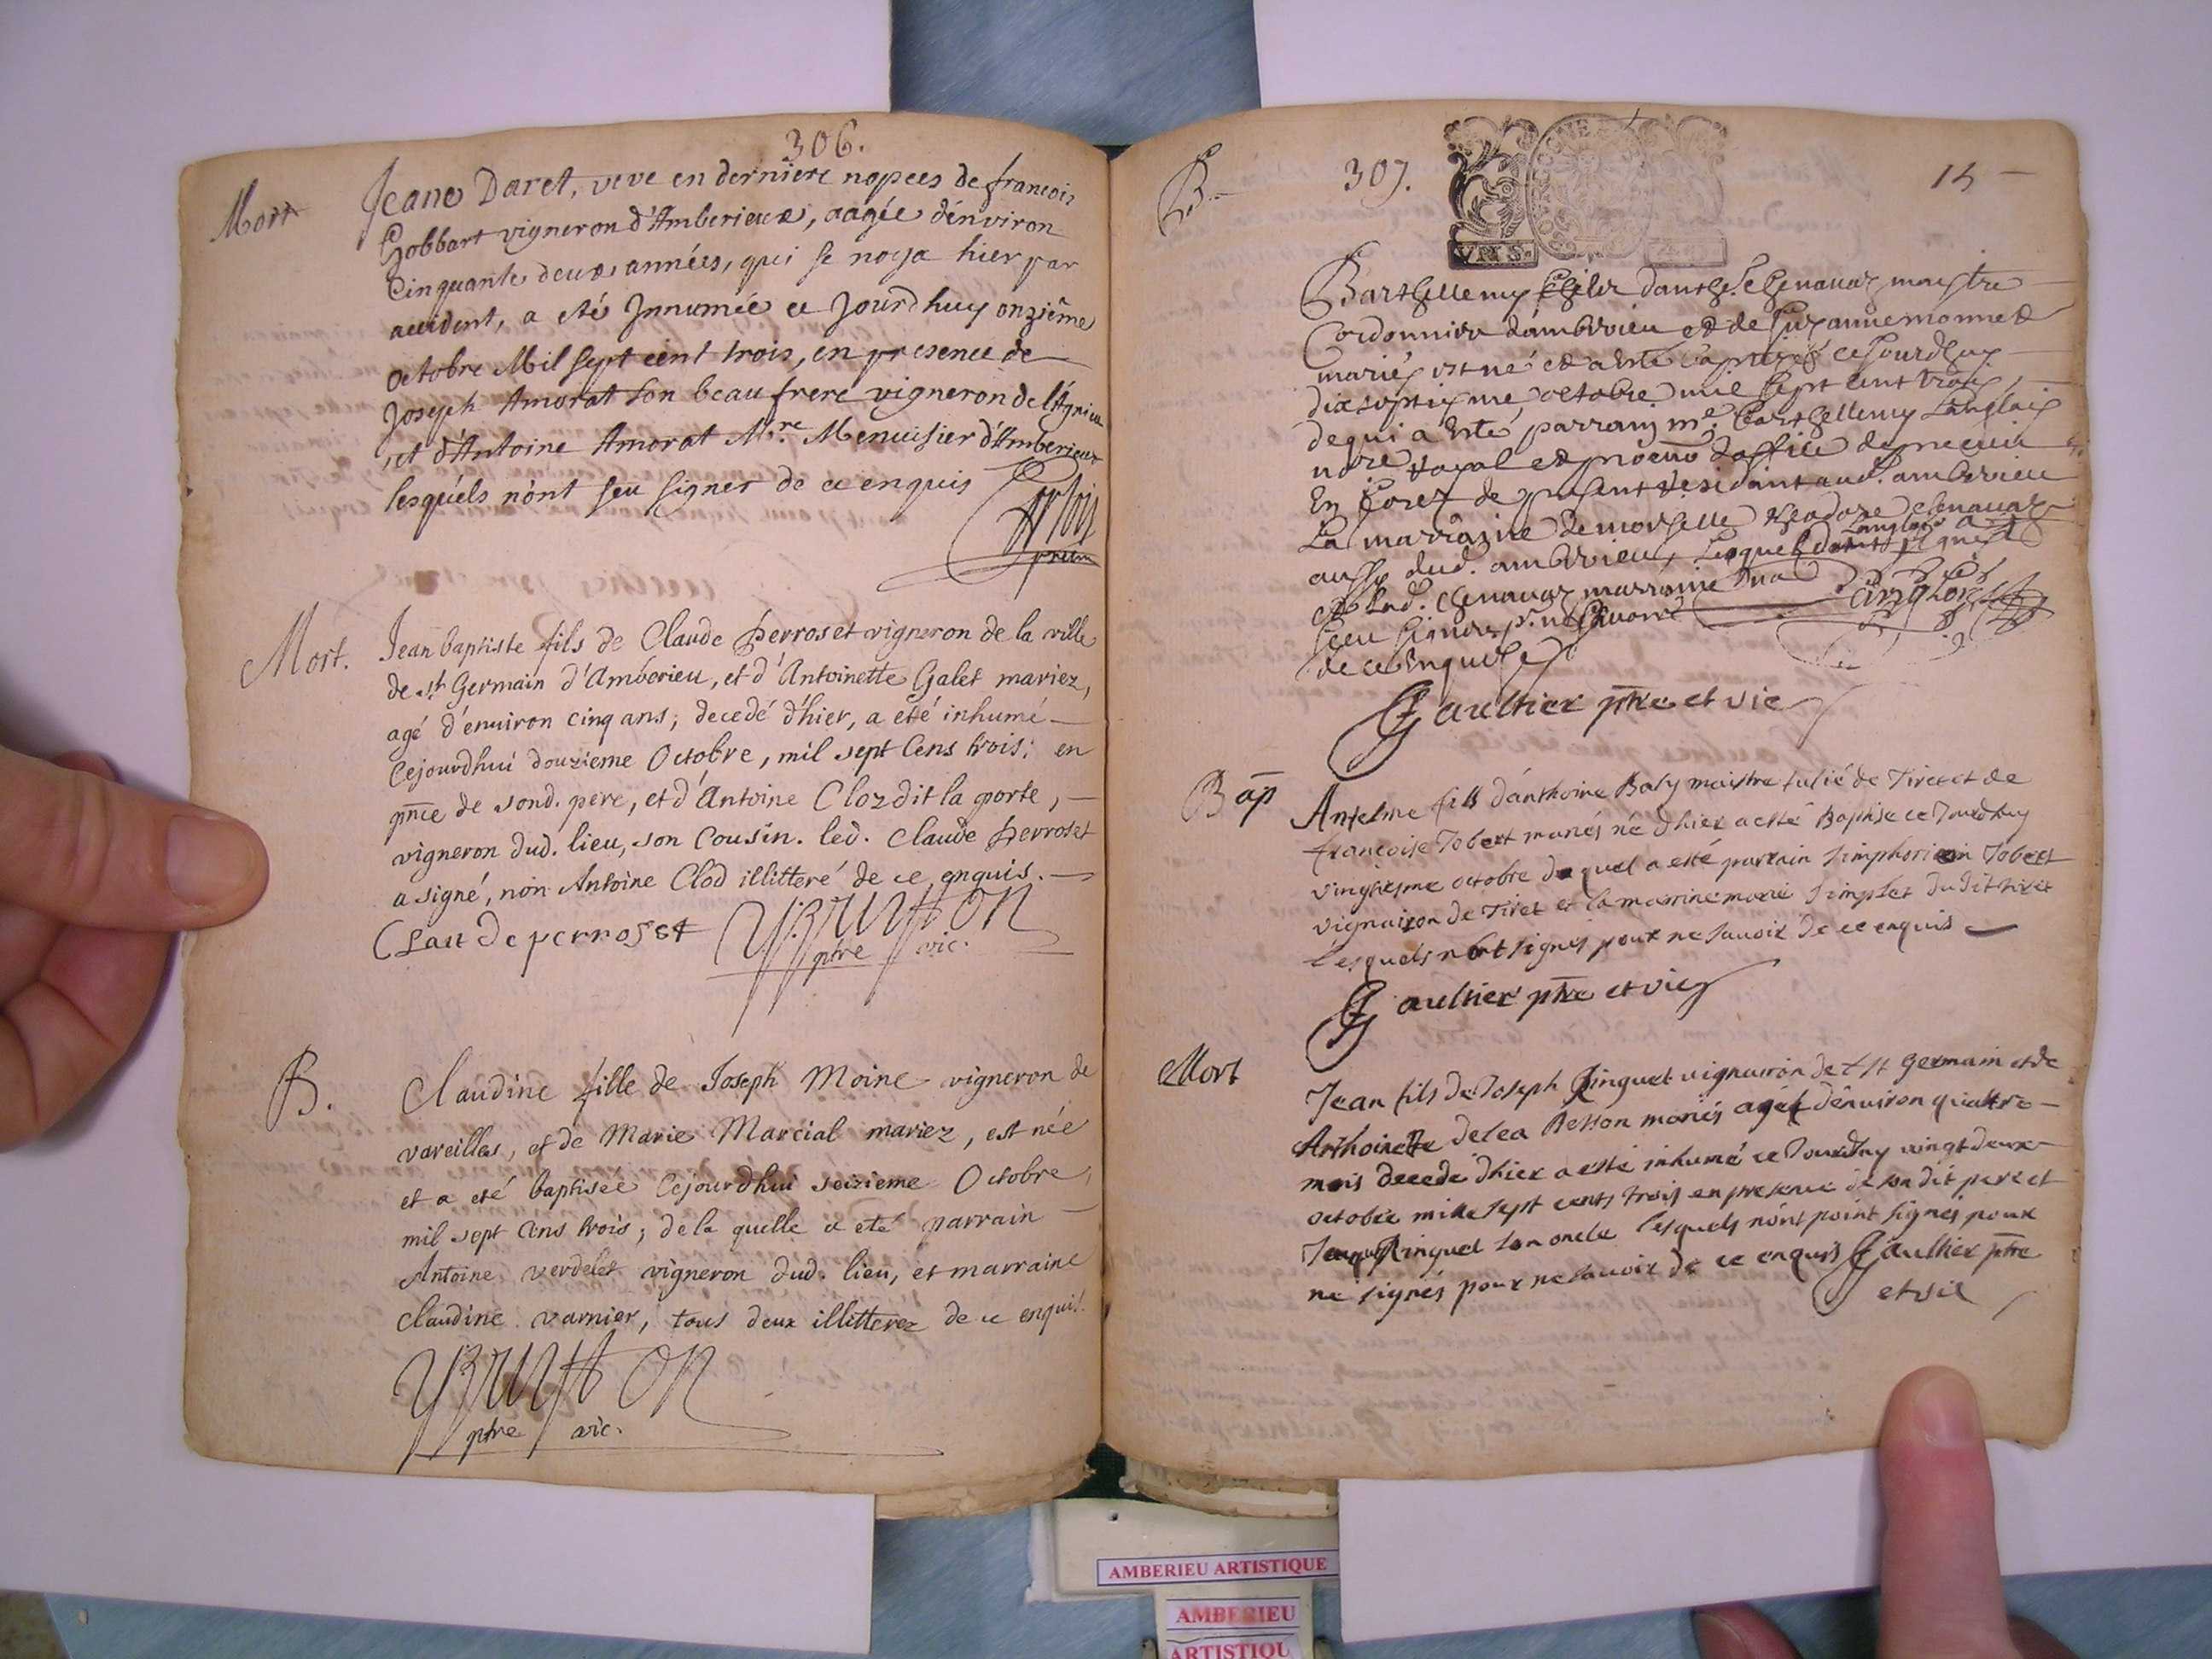 306.
Mort
Jeane Daret, veve en derniere nopces de francois
Gobbart vigneron d'Amberieux, aagée d'énviron
Cinquante deux années, qui se noya hier par
accident, a eté Innumée ce Jourd huy onziême
octobre Mil sept cent trois, en presence de
Joseph Amorat son beau frere vigneron de l'Agnieu
et d'Antoine Amorat Mre Menuisier d'Amberieux
lesquels n'ont sçu signer de ce enquis
Mort.
Jean baptiste fils de Claude Perroset vigneron de la ville
de st Germain d'Amberieu, et d'Antoinette Galet mariez,
agé d'environ cinq ans; decedé d'hier, a eté inhumé
Cejourdhui douzieme Octobre, mil sept Cens trois; en
pnce de sond. pere, et d'Antoine Cloz dit la porte,
vigneron dud. lieu, son Cousin. led. Claude Perroset
a signé, non Antoine Clod illitteré de ce enquis.
Claude perroset
ptre vic.
B.
Claudine fille de Joseph Moine vigneron de
vareilles, et de Marie Marcial mariez, est née
et a eté baptisée Cejourdhui seizieme Octobre,
mil sept Cens trois; de la quelle a eté parrain
Antoine verdelet vigneron dud. lieu, et marraine
Claudine varnier, tous deux illitterez de ce enquis.
ptre vic.
307.
14
B
Barthellemy fils chenavaz maistre
Cordonnier d'ambérieu et de Suzanne monnet
mariés est né et a esté baptizé ce Jourdhuy
dixseptiesme octobre mil sept cent trois,
de qui a esté parrain me. Barthellemy Langlois
no.re royal et d'office de
En forez de present residant aud. amberieu
La marraine demoiselle chenavaz
aussy dud. amberieu, Lesquels Langlois a signé
et lad. chenavaz marraine n'a
sceu signer
de ce Enquise
Langlois
Gaultier ptre et vic
Bap
Anselme fils d'anthoine Baly maistre tulié de Tiret et de
francoise Jobert mariés né d'hier a esté Baptise ce Jourdhuy
vingtiesme octobre duquel a esté parrain simphorien Jobert
vignairon de Tiret et la marrine marie simplet dudit tiret
lesquels n'ont signés pour ne savoir de ce enquis
Gaultier ptre et vic
Mort
Jean fils de Joseph Ringuet vignairon de st germain et de
Anthoinette delea Besson mariés agé d'environ quattre
mois decede d'hier a esté inhumé ce Jourdhuy vingt deux
octobre mille sept cents trois en presence de son dit pere et
Ringuet son oncle lesquels n'ont point signés pour
ne signés pour ne savoir de ce enquis Gaultier ptre
et vic
AMBERIEU ARTISTIQUE
AMBERIEU
ARTISTIQU